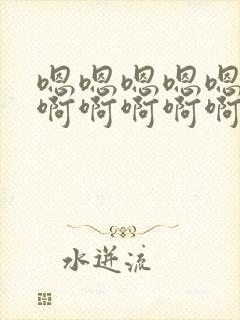 嗯嗯嗯嗯嗯
啊啊啊啊啊
水迸流